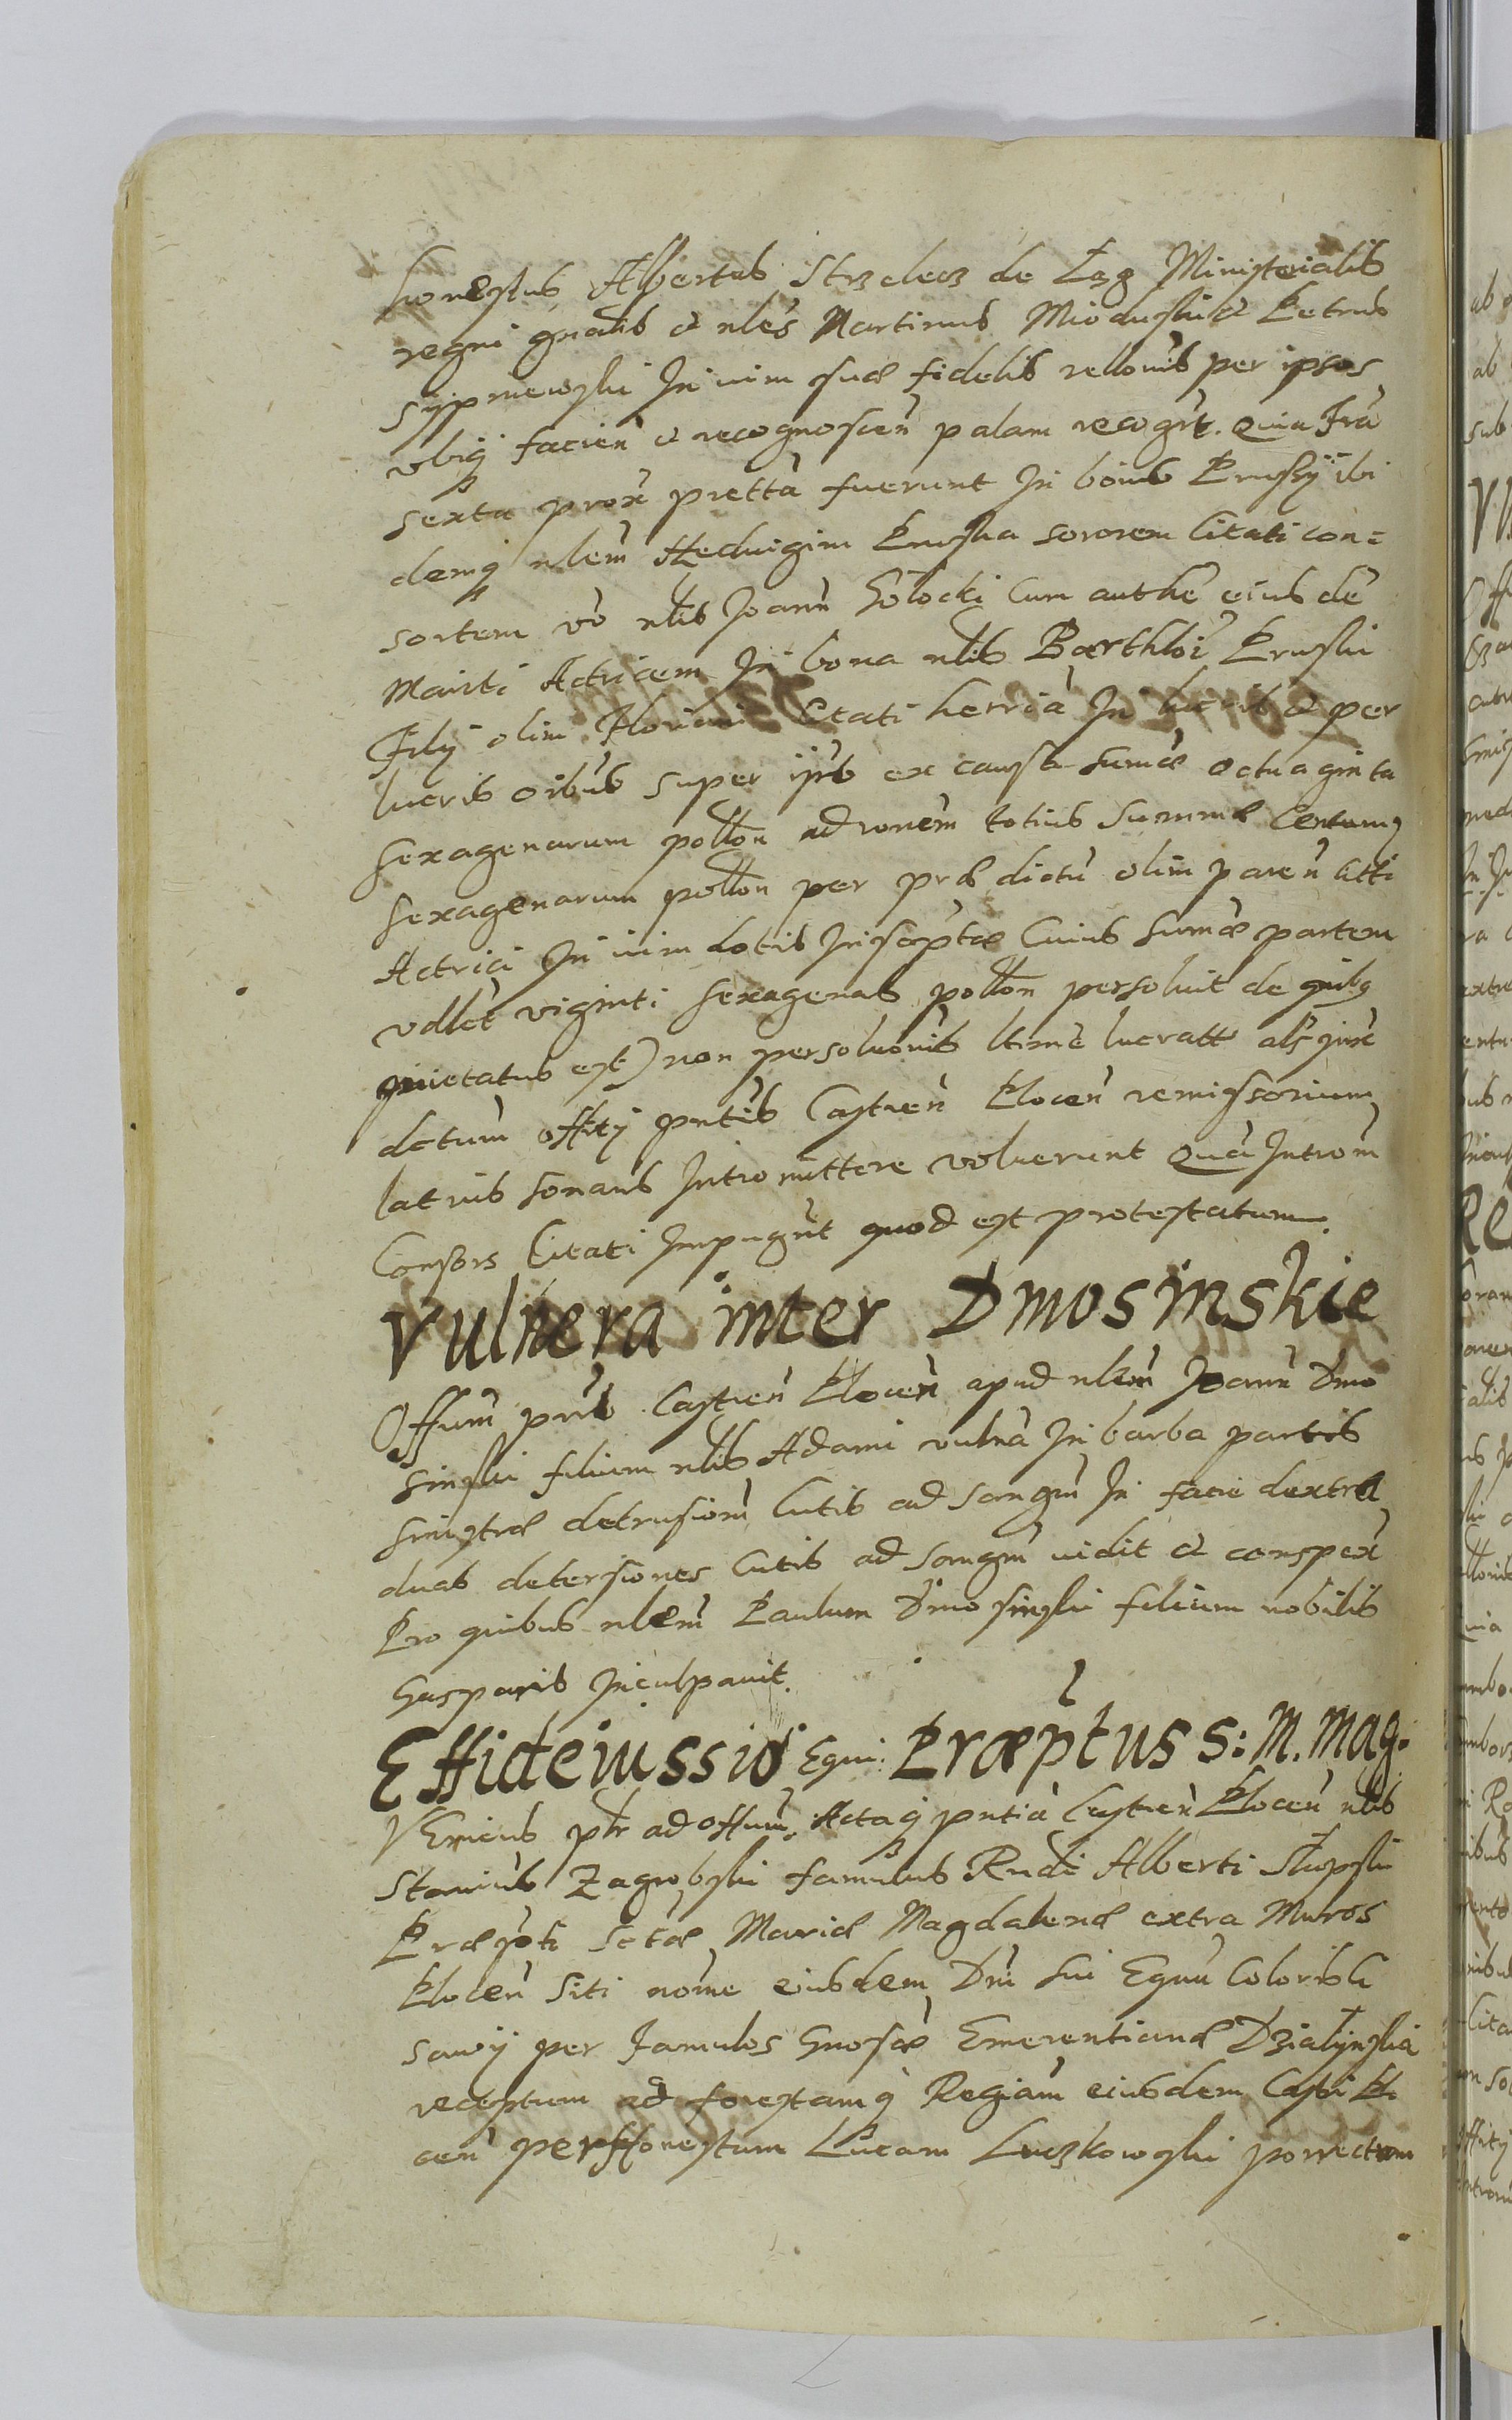 honestus Albertus Strzelecz de Łeg Ministerialis
regni gnalis et nles Martinus Mioduski et Petrus
Sypniewski In vim suæ fidelis rellonis per ipsos
vbiq facien et recognoscen palam recogrt. Quia fria
sexta prox pretta fuerunt In bonis Pruski ibi
demq nlem Hedvigim Pruska sororem Citati con=
sortem vo nlis Joann Golocki cum authe eiusde
Mariti Actricem In bona nlis Barthloi Pruski
Filij olim Floriani Citati herria In lucris et per
lucris oibus super ijs ex causa sumæ octuaginta
sexagenarum pollon ad ronem totius Summæ Centum
sexagenarum pollon per præ dictu olim paren citti
Actrici In vim dotis Inscptæ Cuius sumæ partem
vdlet viginti sexagenas pollon persoluit de quibq
quietatus est) non persolutionis ltime lucratt als juxe
dctum Offity pntis Castren Plocen remissorium
latius sonans Intromittere voluerunt Qua Introm
Consors Citati Impugnt quod est protestatum.
Vulnera inter Dmosinskie
Offum pns Castren Plocen apud nlem Joann Dmo
sinski filium nlis Adami vulna In barba partis
sinistræ detrusiom Cutis ad sangm In facie dextra
duas detersiones Cutis ad sangm vidit et conspex
Pro quibus nlem Paulum Dmosinski filium nobilis
Gasparis Inculpauit.
Effideiussio Equi: Præptus S: M. Mag.
VEnicus ptr ad Offum Actaq pntia Castren Plocen nlis
Stanius Zagrobski famulus Rndi Alberti Słupski
Præpoti Sctæ Mariæ Magdalenæ extra Muros
Plocen Siti nomine eiusdem Dni sui Equu Coloris Ci
sawy per famulos Gnosæ Emerentianæ Działynska
receptum ad forestamq Regiam eiusdem Castri Plo
cen per Honestum Lucam Luczkowski porrectum